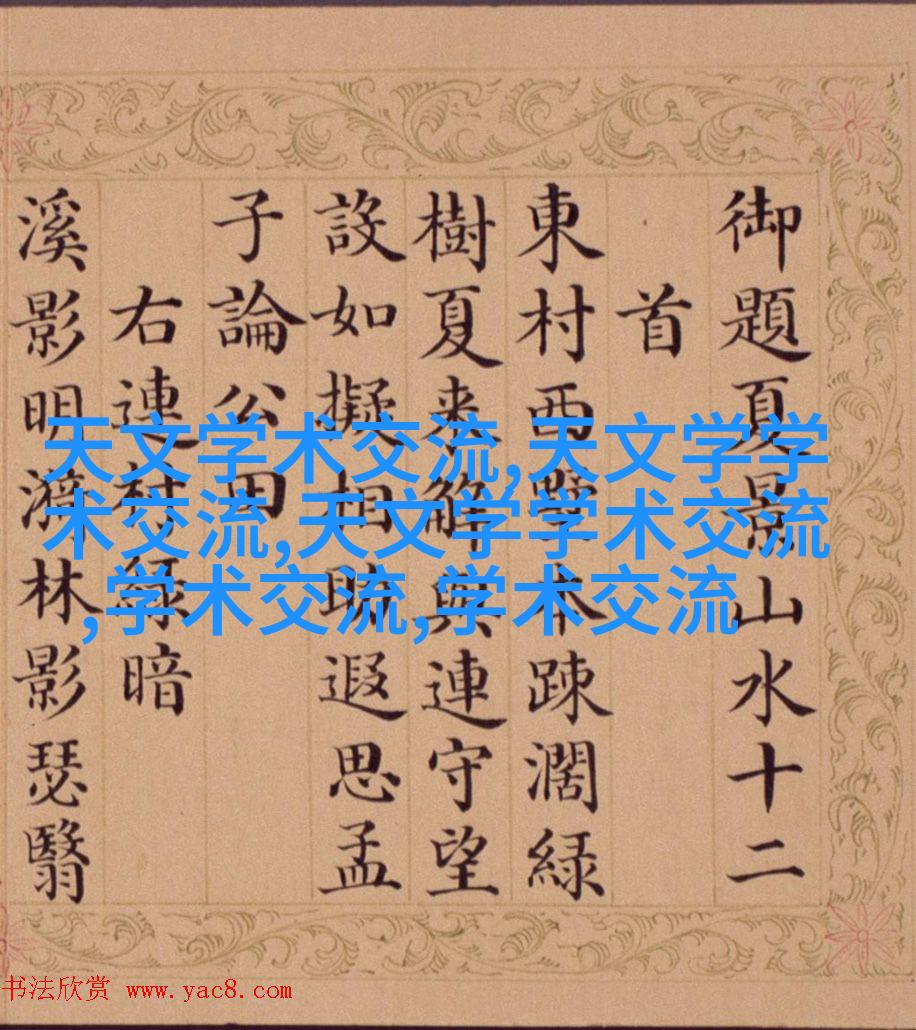 御題夏景山水十二
首
東村西墅本疎濶緑
樹夏来解與連守望
設如擬相助遐思孟
子論公田
右連村緑暗
溪影明漪林影瑟翳
天文学术交流,天文学学
术交流,天文学学术交流
,学术交流,学术交流
书法欣赏 www.yac8.com